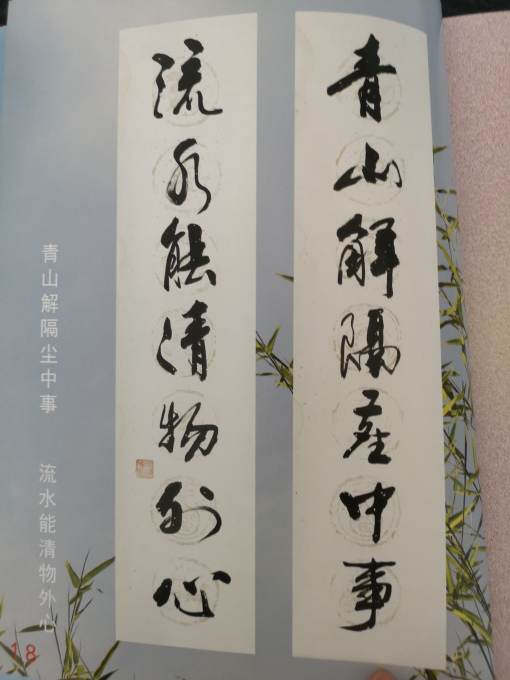 青山解隔尘中事
流水能清物外心
青山解隔尘中事 流水能清物外心
18